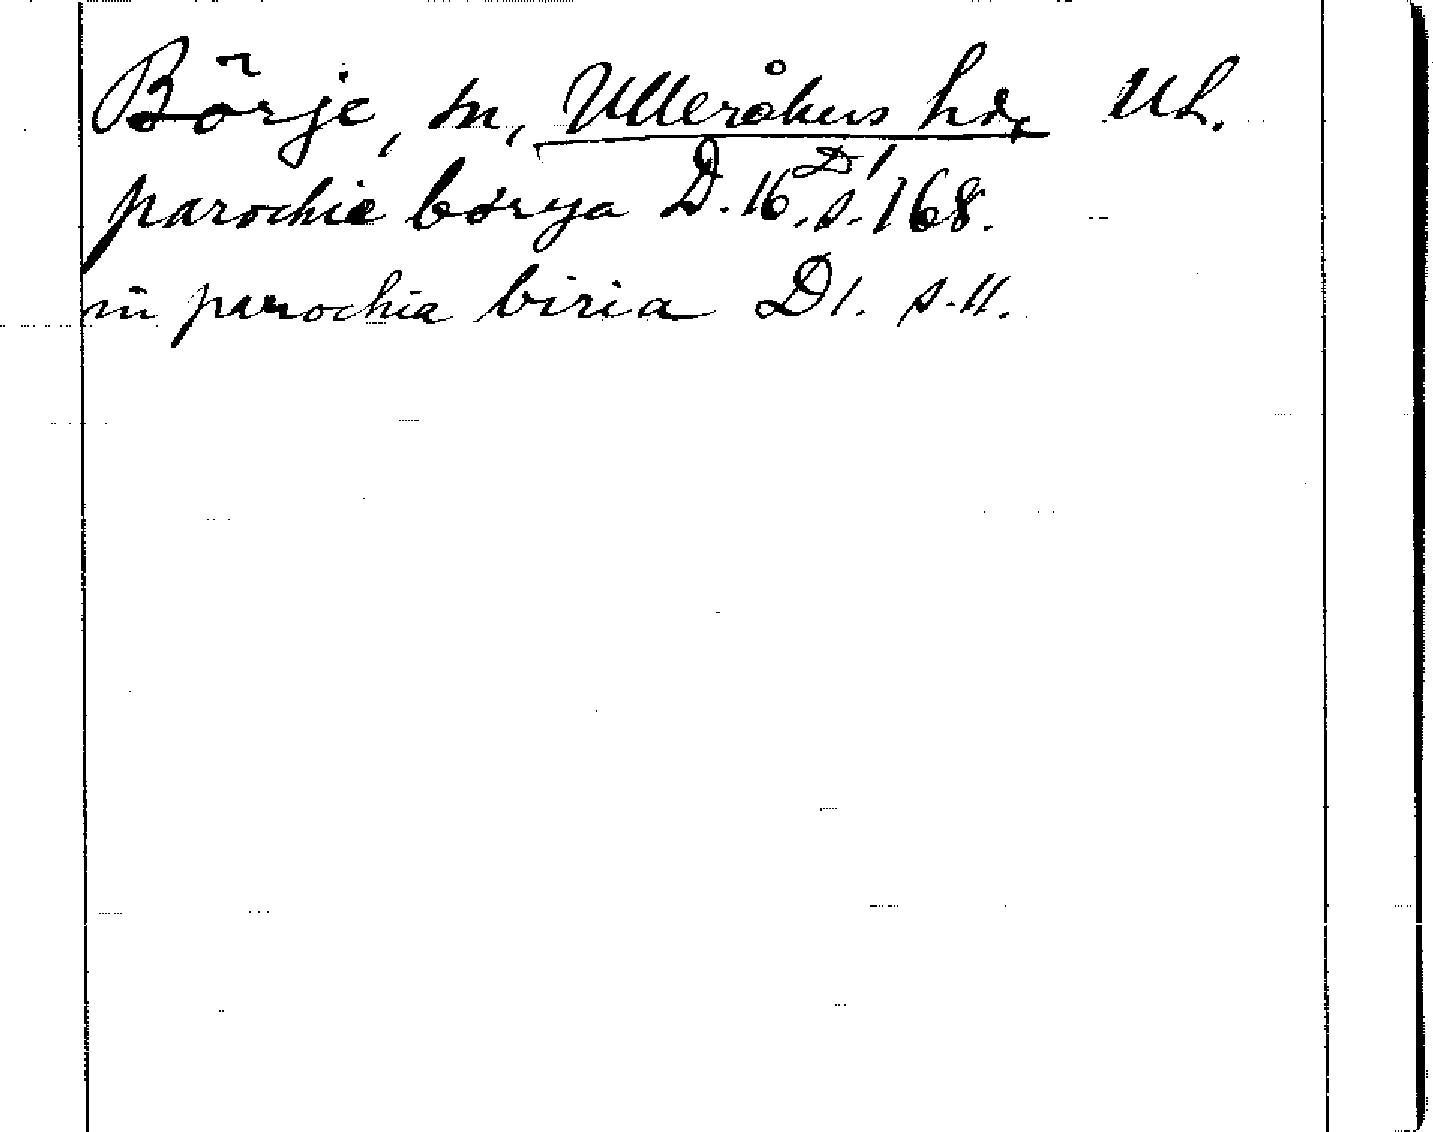 Börje, sn, Ulleråkers hd, UL.
parochie börya D. 16. D1 s. 168.
in parochia biria D1. s. 11.